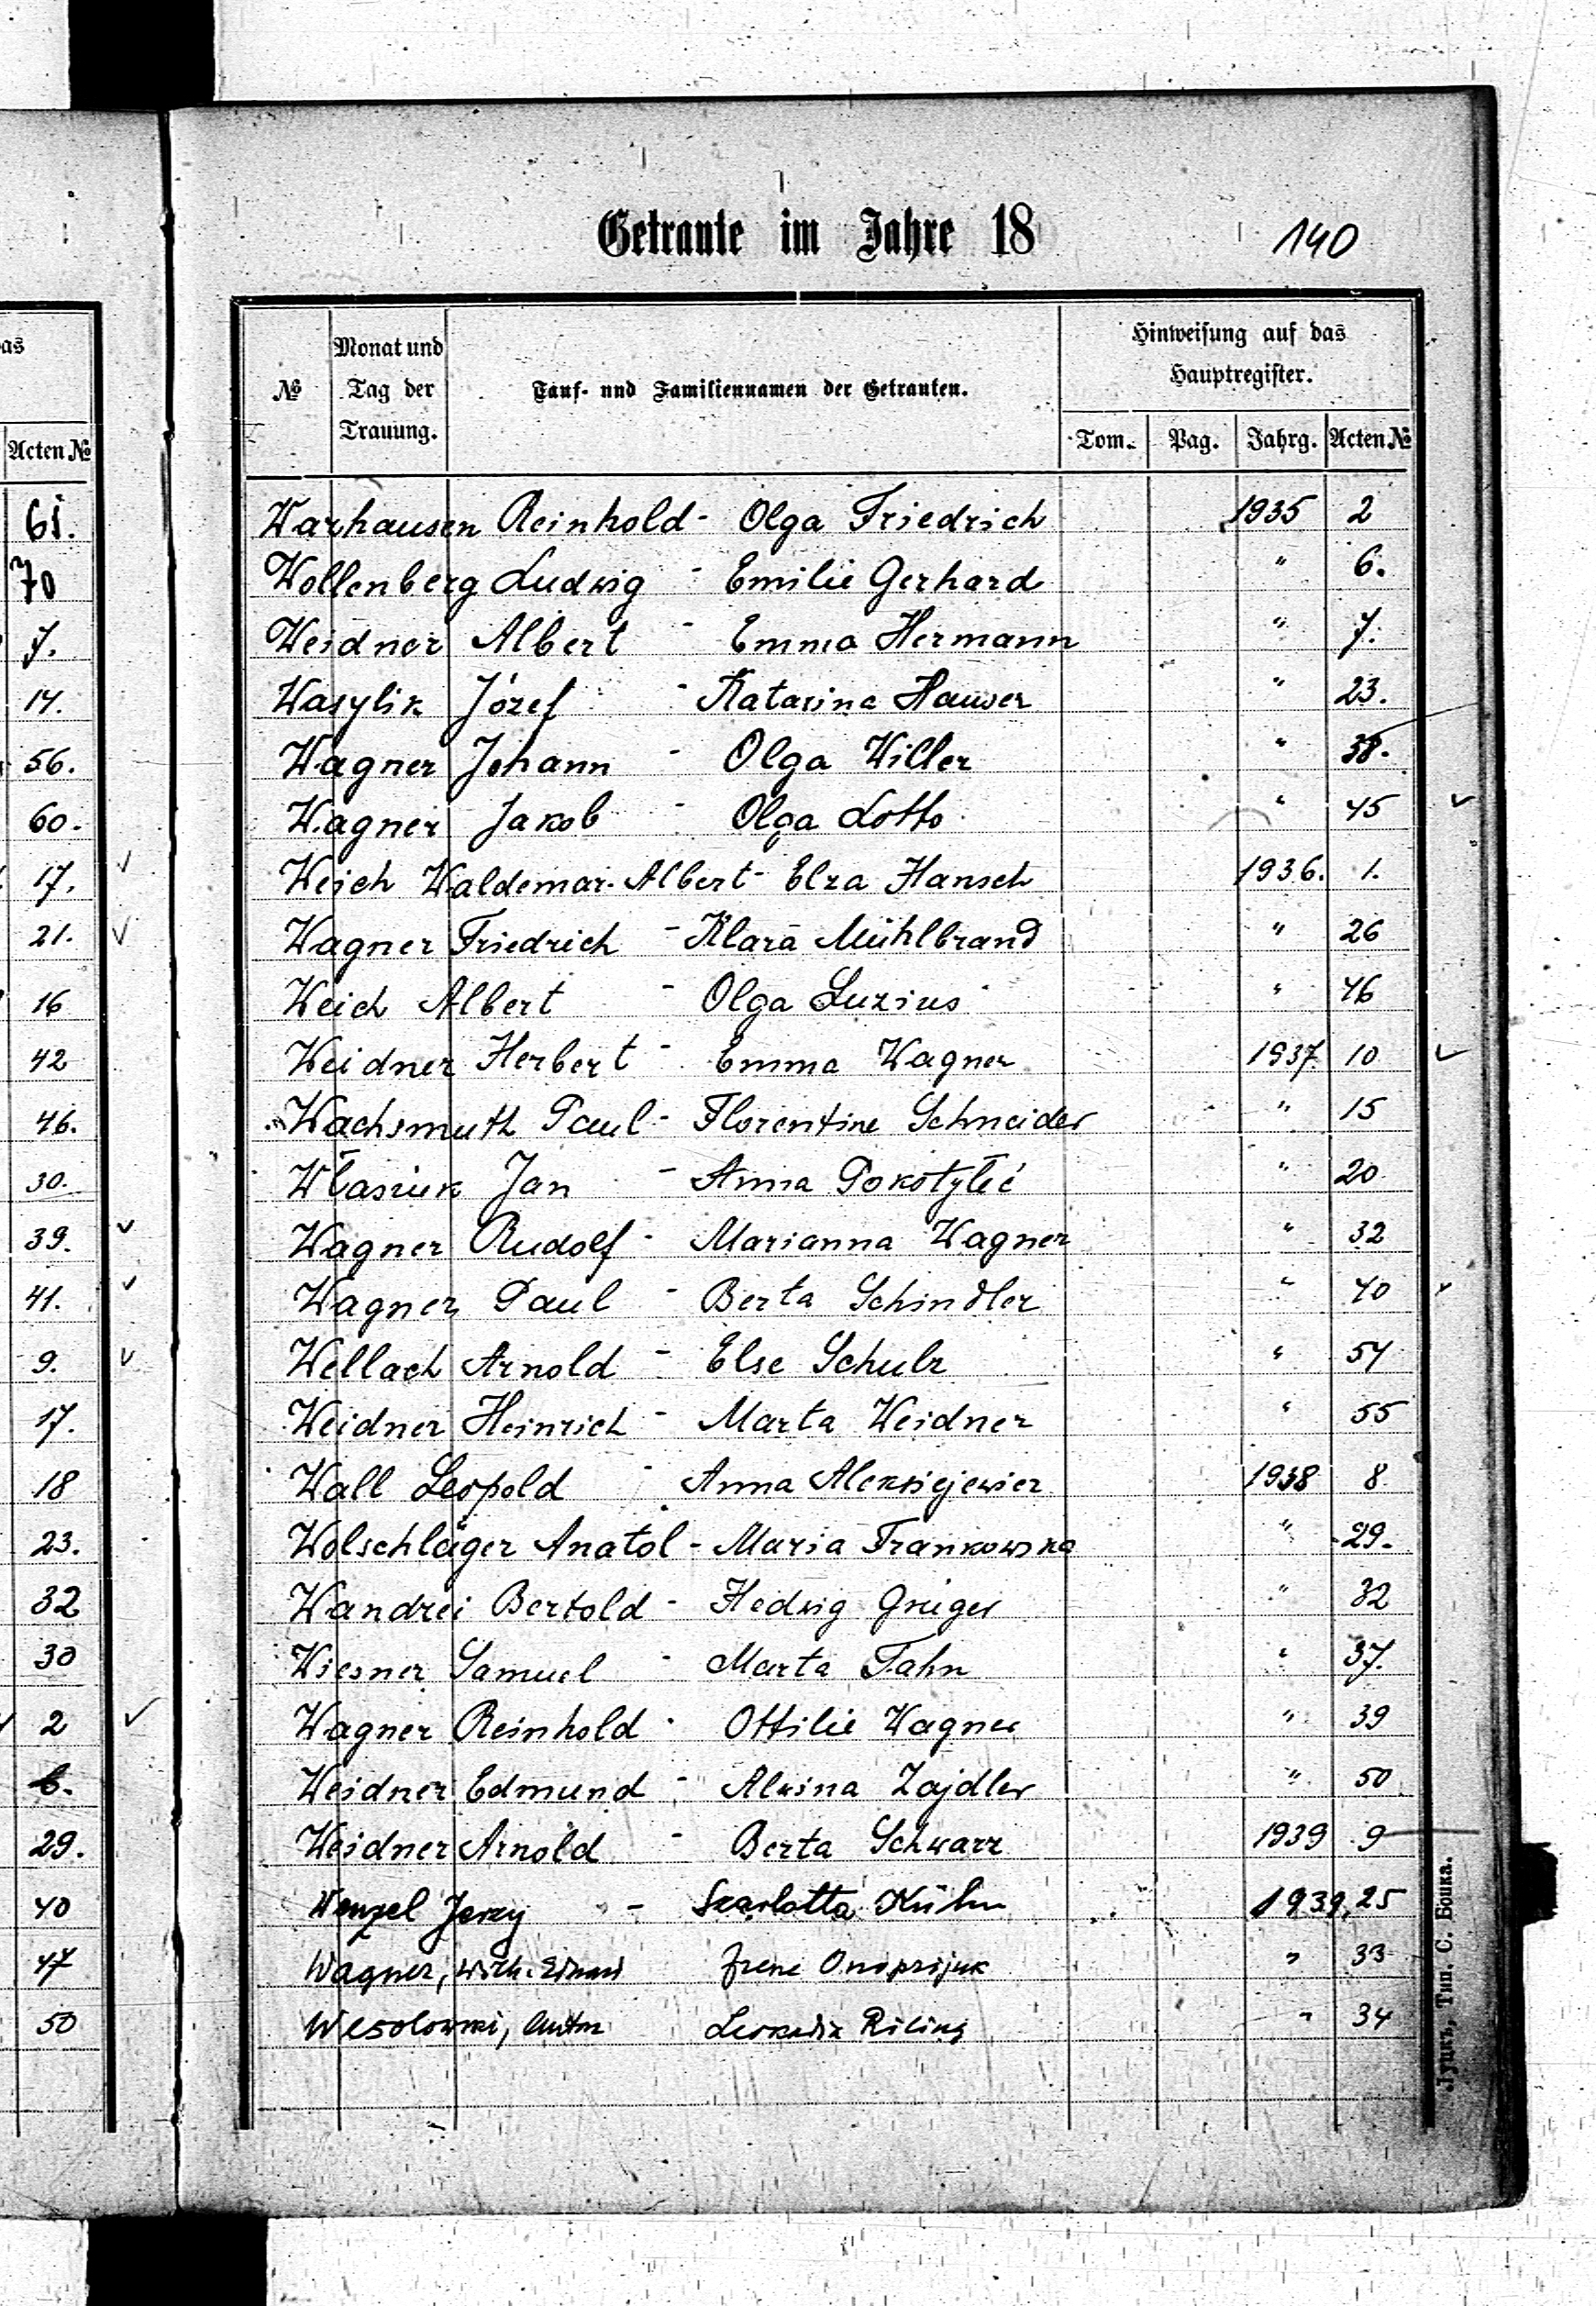 Getraute im Jahre 18 140
as
Acten №
61.
70
7.
14.
56.
60.
17.
21.
16
42
46.
30.
39.
41.
9.
17.
18
23.
32
30
2
6.
29.
40
47
50
№ Monat und Tag der Trauung. Tauf- und Familiennamen der Getrauten. Hinweisung auf das Hauptregister.
Tom. Pag. Jahrg. Acten №
Warhausen Reinhold - Olga Friedrich 1935 2
Wollenberg Ludwig - Emilie Gerhard " 6.
Weidner Albert - Emma Hermann " 7.
Wasylik Józef - Katarina Hauser " 23.
Wagner Johann - Olga Willer " 38.
Wagner Jakob - Olga Lotto " 45
Weich Waldemar-Albert - Elza Hansch 1936. 1.
Wagner Friedrich - Klara Mühlbrand " 26
Weich Albert - Olga Luzius " 46
Weidner Herbert - Emma Wagner 1937 10
Wachsmuth Paul - Florentine Schneider " 15
Własiuk Jan - Anna " 20
Wagner Rudolf - Marianna Wagner " 32
Wagner Paul - Berta Schindler " 40
Wellach Arnold - Else Schulz " 54
Weidner Heinrich - Marta Weidner " 55
Wall Leopold - Anna Aleksiejewicz 1938 8
Wolschläger Anatol - Maria Frankowska " 29.
Wandrei Bertold - Hedwig " 32
Wiesner Samuel - Marta Fahn " 37.
Wagner Reinhold - Ottilie Wagner " 39
Weidner Edmund - Alwina Zajdler " 50
Weidner Arnold - Berta Schwarz 1939 9
Wenzel Jerzy - Szarlotta Kühn 1939, 25
Wagner, Irene Onoprijuk " 33
Wesolowski, Anton Leokadia Riling " 34
Луцкъ, Тип. С. Бонка.